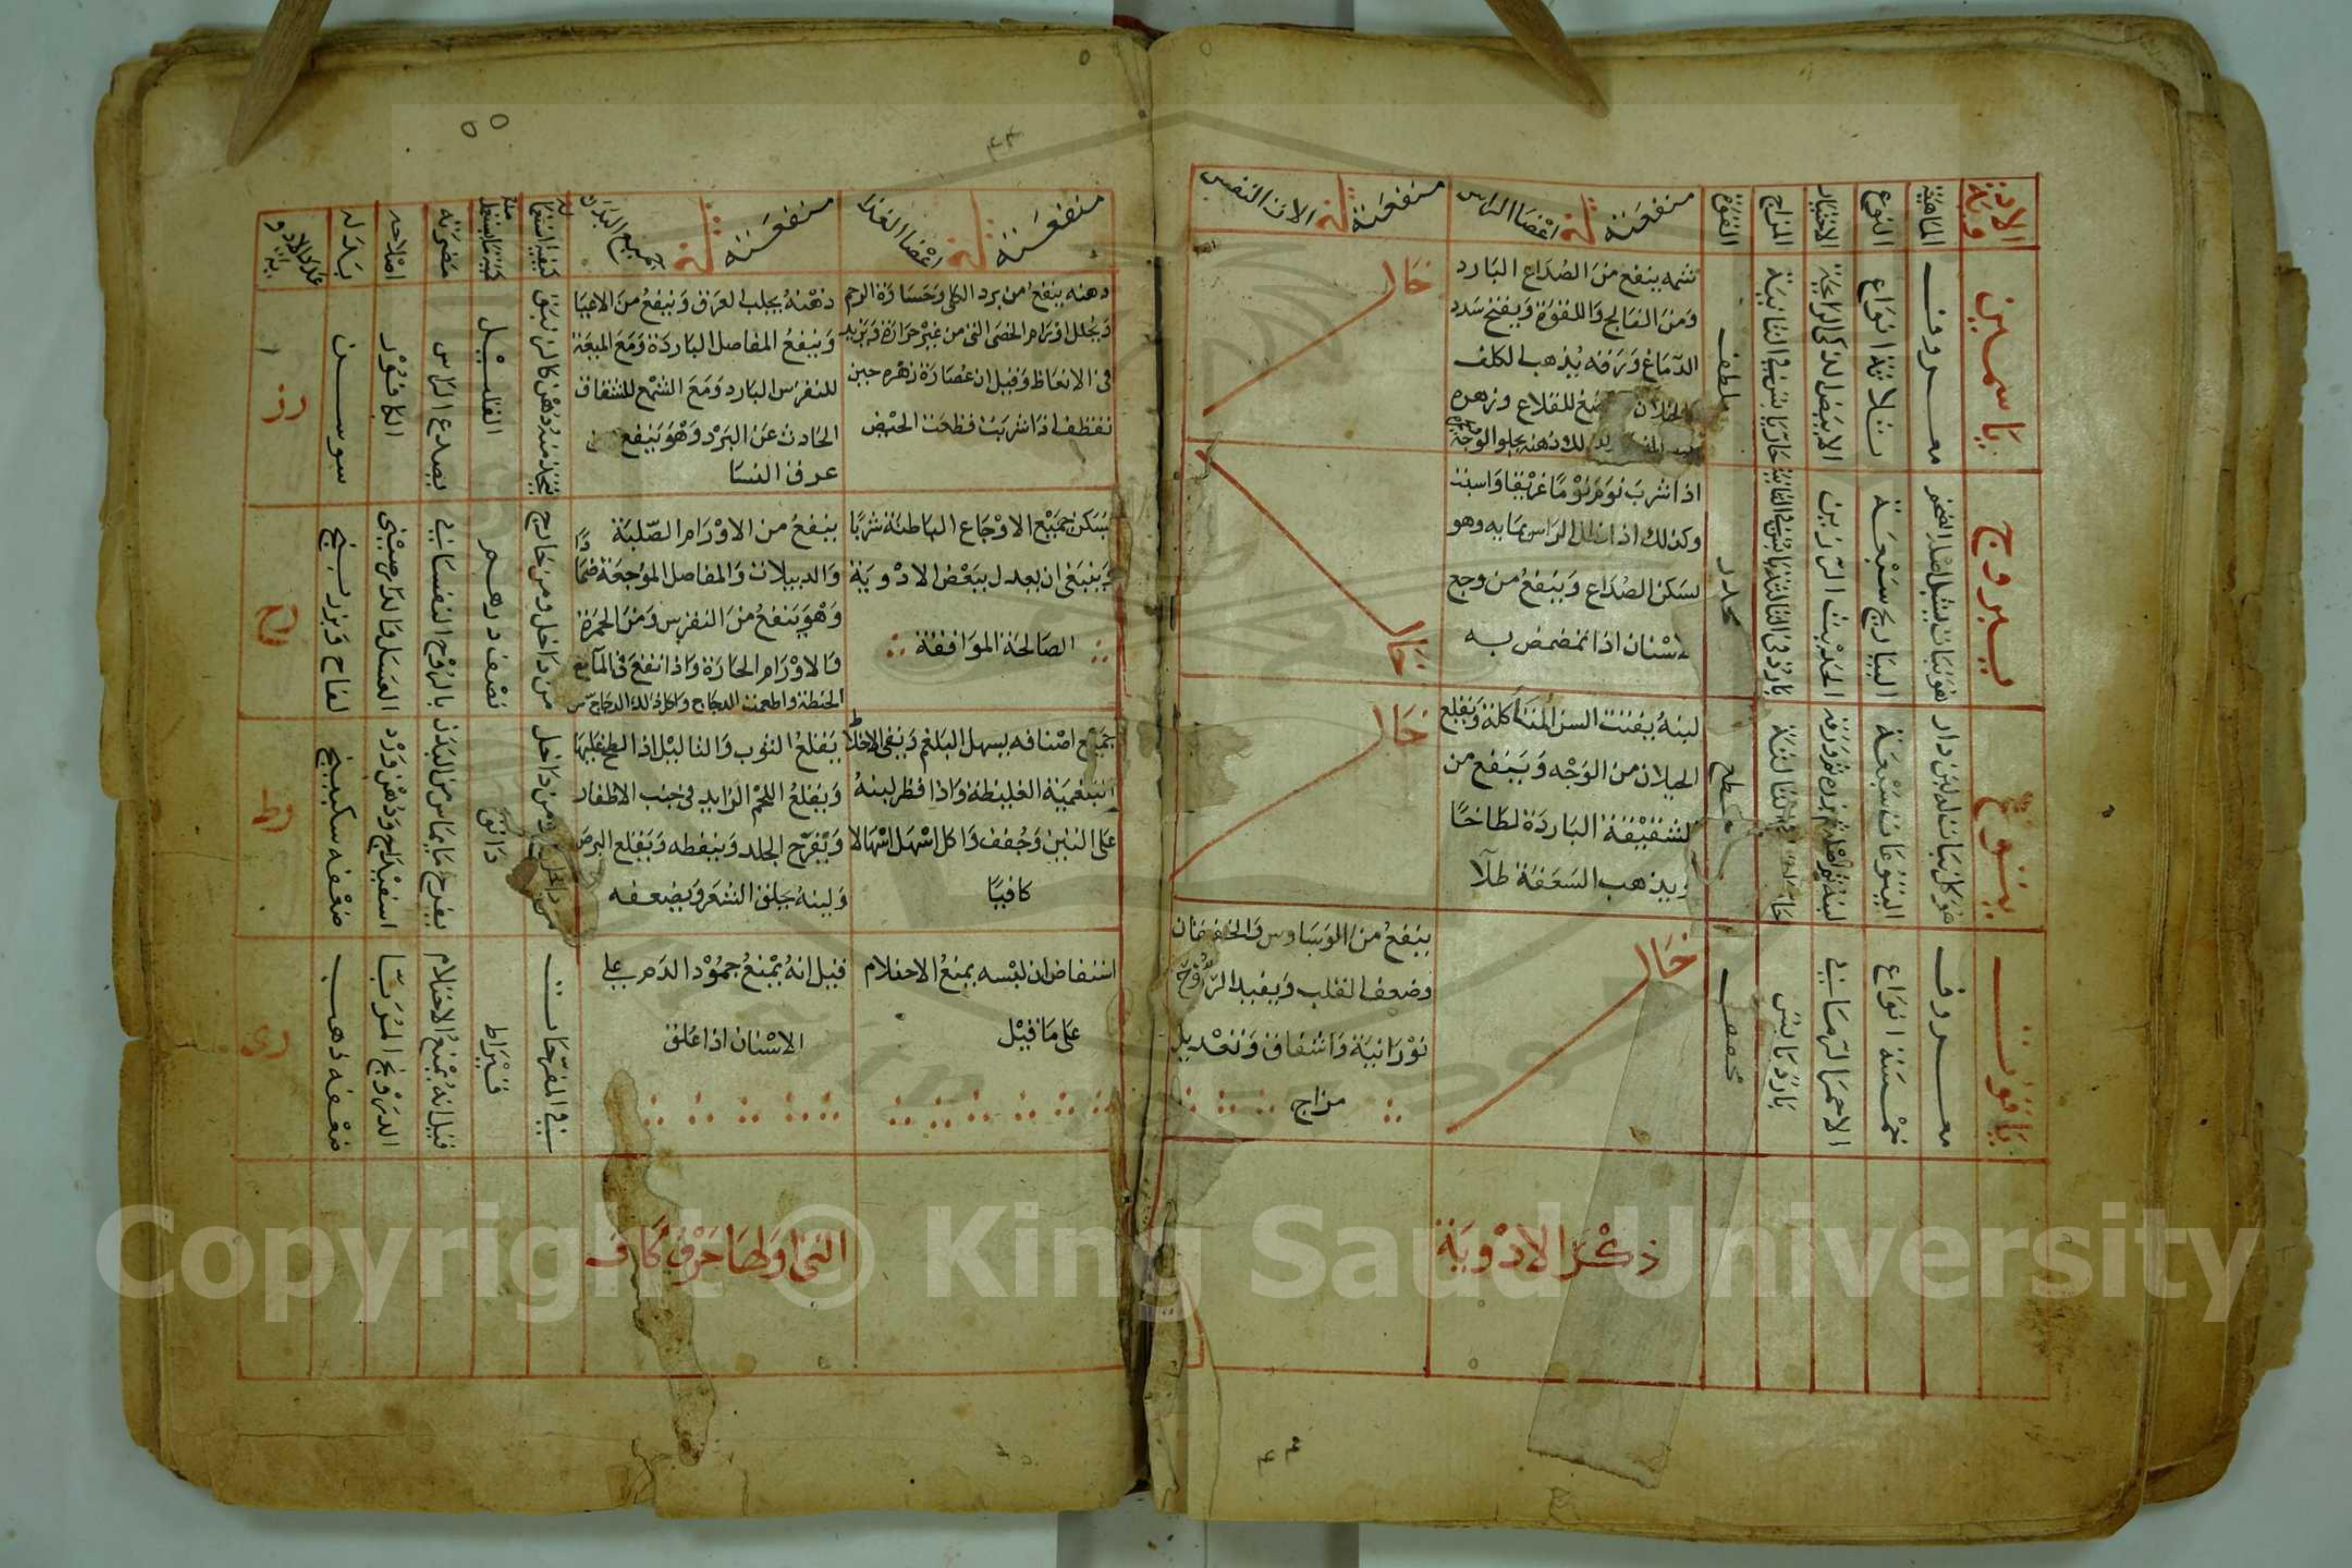 الادوية
الماهية
النوع
الاختيار
المزاج
القوة
منفعته في اعضا الراس
منفعته في الات النفس
ياسمين
معروف
ثلاثة انواع
الابيض الذكي الرايحة
حار يابس في الثانية
ملطف
شمه ينفع من الصداع البارد
ومن الفالج واللقوة ويفتح سدد
الدماغ ورقه يذهب الكلف
للقلاع وزهره
دهنه يجلو الوجه
خال
يبروج
هو نبات يشبل اصل الصخر
اليباريج سبعة
الحديث الرزين
مخدر
اذا شرب نوم نوما غرقا واسبت
وكذلك اذا طلى الراس بمايه وهو
يسكن الصداع وينفع من وجع
الاسنان اذا تمضمض به
خال
يتوع
هو كل نبات له لبن دار
اليتوعات سبعة
مقطع
لبنه يفتت السن المتاكلة ويقلع
الخيلان من الوجه وينفع من
الشقيقة الباردة لطاخا
ويذهب السعفة طلا
خال
ياقوت
معروف
خمسة انواع
الاحمر الرماني
بارد يابس
مجفف
خال
ينفع من الوسواس والخفقان
وضعف القلب ويفيد الروح
نورانية واشفاف وتعديل
مزاج
ذكر الادوية
منفعته في اعضا الغذا
منفعته في جميع البدن
كيفية استعماله
كمية ما يستعمل منه
مضرته
اصلاحه
بدله
عدد الادوية
دهنه ينفع من برد الكلى وجساوة الرحم
ويحلل اورام الخصى التي من غير حرارة ويزيد
في الانعاظ وقيل ان عصارة زهره حين
تقطف اذا شربت قطعت الحيض
دهنه يجلب العرق وينفع من الاعيا
وينفع المفاصل الباردة ومع الميعة
للنقرس البارد ومع الشمع للشقاق
الحادث عن البرد وهو ينفع من
عرق النسا
يتخذ منه دهن كالزنبق
الفلـيـل
يصدع الراس
الكافور
سوسن
رز
يسكن جميع الاوجاع الباطنة شربا
وينبغي ان يعدل ببعض الادوية
الصالحة الموافقة
ينفع من الاورام الصلبة
والدبيلات والمفاصل الموجعة ضمادا
وهو ينفع من النقرس ومن الحمرة
والاورام الحارة واذا انقع في المآ مع
الحنطة واطعمت الدجاج واكل ذلك الدجاج
من داخل ومن خارج
نصف درهم
بالروح النفساني
العسل والدارصيني
لفاح وبزر بنج
رح
جميع اصنافه يسهل البلغم وينقى الاخلاط
البلغمية الغليظة واذا قطر لبنه
على التين وجفف واكل اسهل اسهالا
كافيا
يقلع التوت والثاليل اذا لطخ عليها
ويقلع اللحم الزايد في جنب الاظفار
ويقرح الجلد وينفطه ويقلع البرص
ولبنه يحلق الشعر ويضعفه
دانق
يقرح ما يماس من البدن
اسفيداج ودهن ورد
ضعفه سكبينج
رط
استفاض ان لبسه يمنع الاحتلام
على ما قيل
قيل انه يمنع جمود الدم على
الاسنان اذا علق
في المفرحات
قيراط
قيل انه يمنع الاحتلام
الدرونج المربا
ضعفه ذهب
رى
التي اولها حرف كاف
Copyright © King Saud University